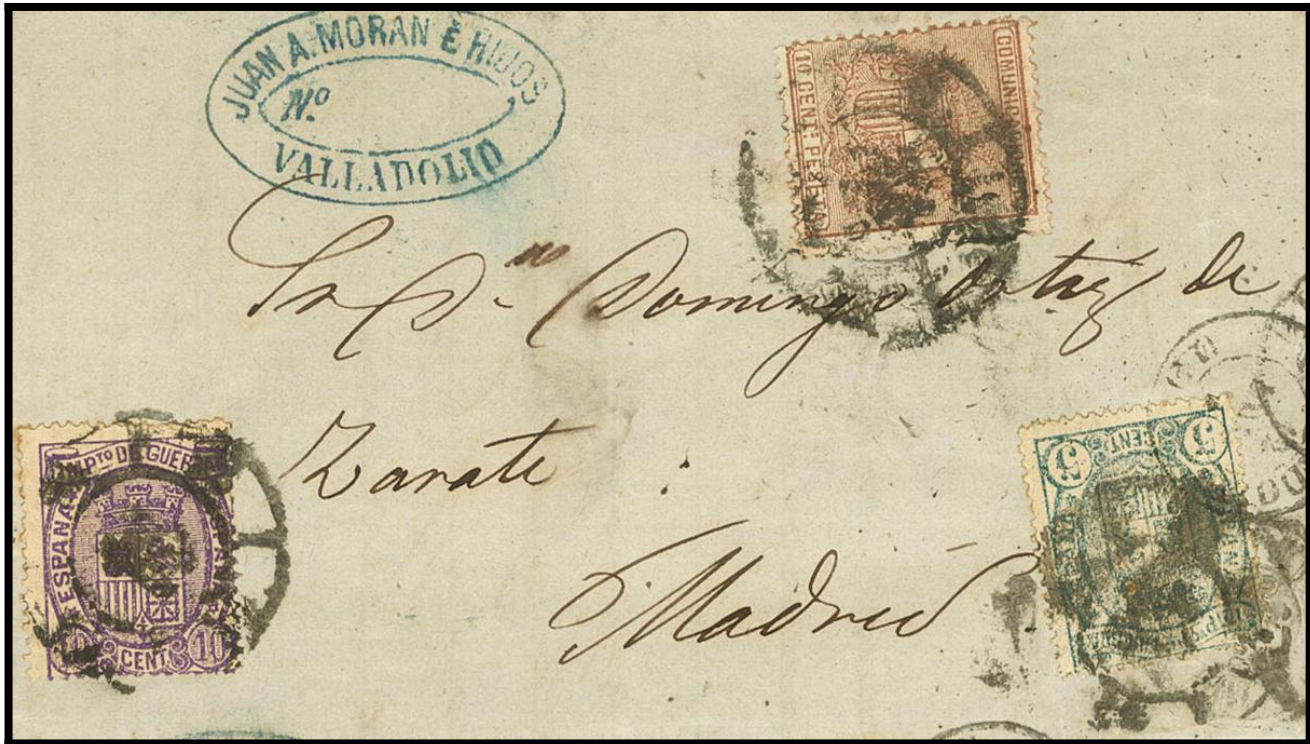 JUAN A. MORAN É HIJOS
Nº
VALLADOLID
10 CENT. PESETA
COMUNIC
Sr Dn Domingo Ortiz de
Zarate
Madrid
IMPTO DE GUER
ESPAÑA
10 CENT 10
5 CENT 5